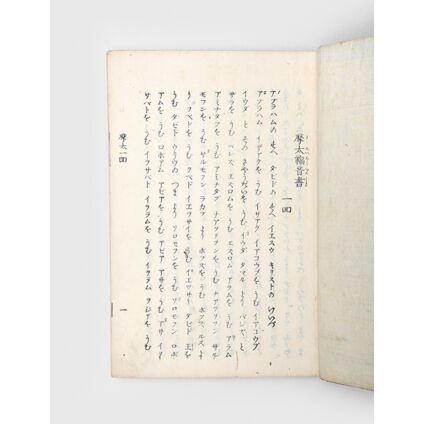 摩太福音書
一回
アブラハムの すへ ダビドの すへ イエスウ キリストの けいづ
アブラハム イザアクをうむ イサアク イアコウブをうむ イアコウブ
イウダ と その きやうだいをうむ イウダ タマル より パレズと
サラをうむ パレズ エスロムをうむ エスロム アラムをうむ アラム
アミナダブをうむ アミナダブ ナアソフンをうむ ナアソフン サル
モフンをうむ サルモフン ラカブ より ボフズをうむ ボフズ ルスより
ヲベドをうむ ヲベド イエツサイをうむ イエツサイ ダビド 王を
うむ ダビド ウリヤの つま より ソロモフンをうむ ソロモフン ロボ
アムをうむ ロボアム アビアをうむ アビア アサをうむ アサ イヲ
サパトをうむ イヲサパト イヲラムをうむ イヲラム ヲジアをうむ
摩太一回
一